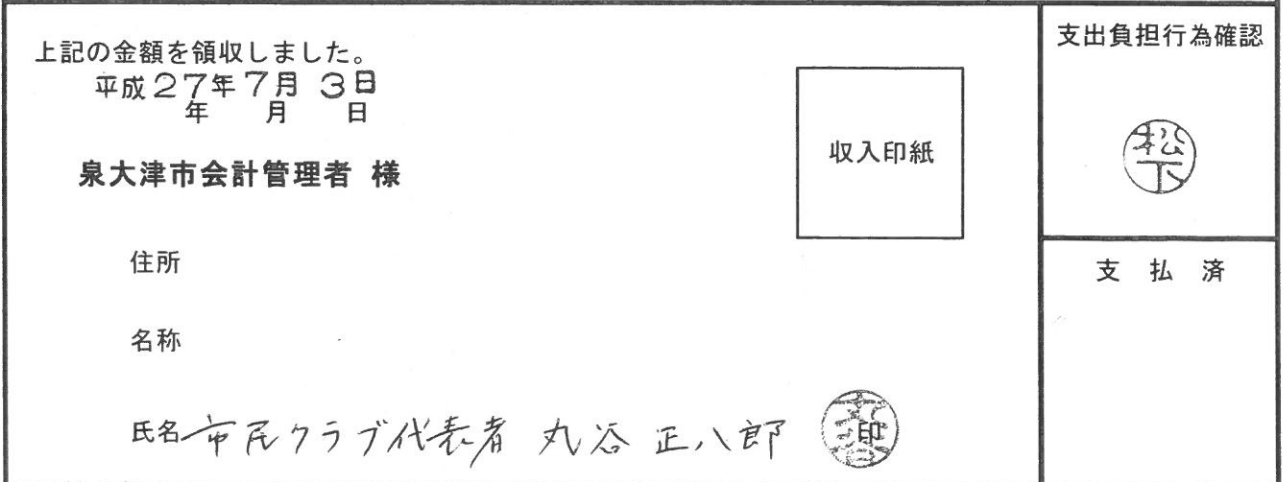 上記の金額を領収しました。
平成27年7月3日
年 月 日
泉大津市会計管理者 様
住所
名称
氏名 市民クラブ代表者 丸谷 正八郎 印
丸谷
収入印紙
支出負担行為確認
松下
支 払 済